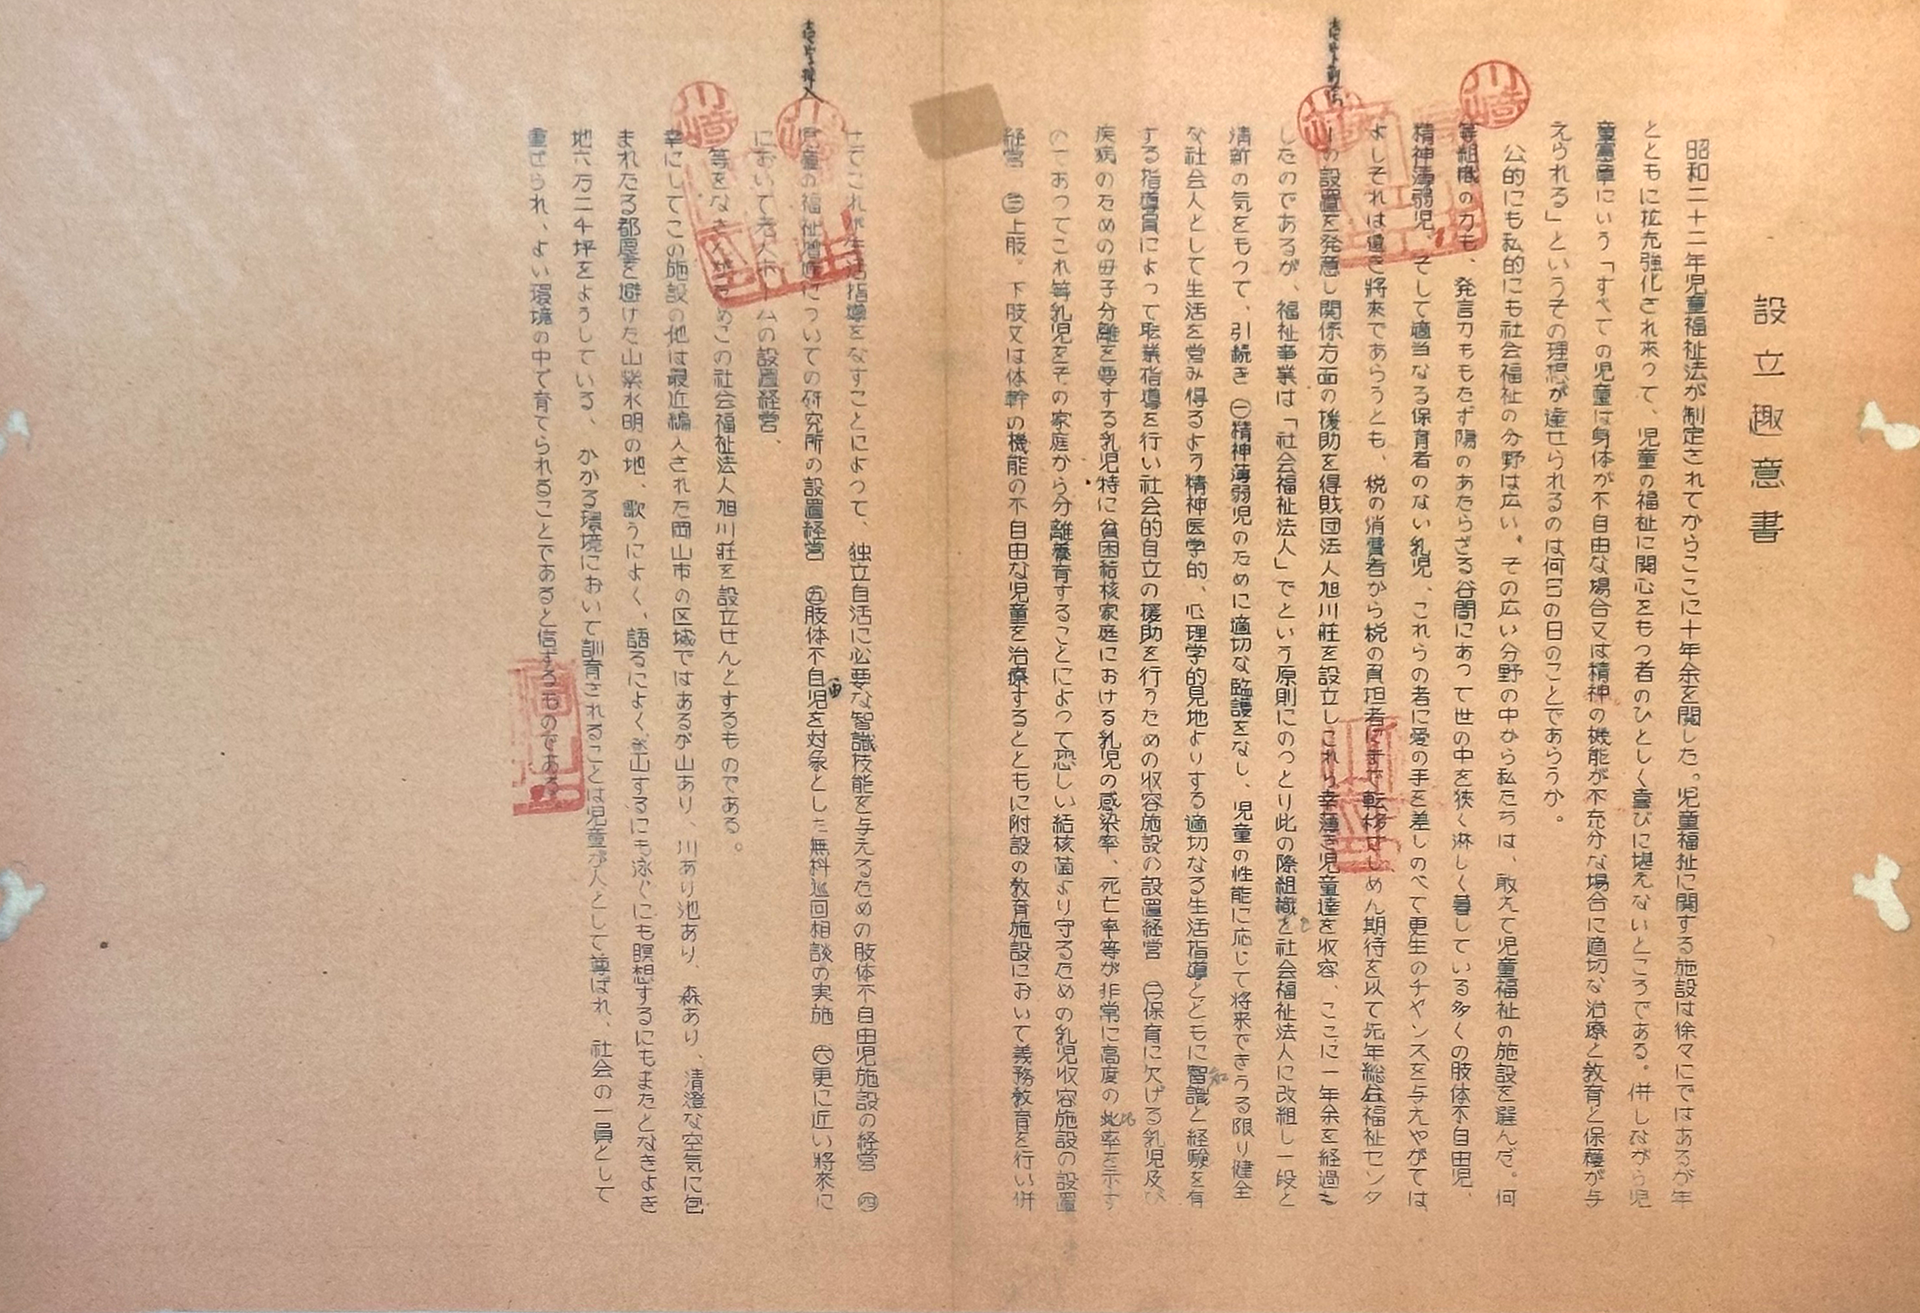 設立趣意書
昭和二十二年児童福祉法が制定されてからここに十年余を閲した。児童福祉に関する施設は徐々にではあるが年
とともに拡充強化され来つて、児童の福祉に関心をもつ者のひとしく喜びに堪えないところである。併しながら児
童憲章にいう「すべての児童は身体が不自由な場合又は精神の機能が不充分な場合に適切な治療と教育と保護が与
えられる」というその理想が達せられるのは何日の日のことであらうか。
公的にも私的にも社会福祉の分野は広い。その広い分野の中から私たちは、敢えて児童福祉の施設を選んだ。何
等組織の力も、発言力ももたず陽のあたらざる谷間にあつて世の中を狭く淋しく暮している多くの肢体不自由児、
精神薄弱児、そして適当なる保育者のない乳児、これらの者に愛の手を差しのべて更生のチヤンスを与えやがては
よしそれは遠き將来であらうとも、税の消費者から税の負担者にまで転移せしめん期待を以て先年総合福祉センタ
ーの設置を発意し関係方面の援助を得財団法人旭川荘を設立しこれら幸薄き児童達を収容、ここに一年余を経過
したのであるが、福祉事業は「社会福祉法人」でという原則にのつとり此の際組織を社会福祉法人に改組し一段と
清新の気をもつて、引続き ㊀精神薄弱児のために適切な臨護をなし、児童の性能に応じて将来できうる限り健全
な社会人として生活を営み得るよう精神医学的、心理学的見地よりする適切なる生活指導とともに智識と経験を有
する指導員によつて職業指導を行い社会的自立の援助を行うための収容施設の設置経営 ㊁保育に欠げる乳児及び
疾病のための母子分離を要する乳児特に貧困結核家庭における乳児の感染率、死亡率等が非常に高度の比率を示す
のであつてこれ等乳児をその家庭から分離養育することによつて恐しい結核菌より守るための乳児収容施設の設置
経営 ㊂上肢。下肢又は体幹の機能の不自由な児童を治療するとともに附設の教育施設において義務教育を行い併
せてこれが生活指導をなすことによつて、独立自活に必要な智識技能を与えるための肢体不自由児施設の経営 ㊃
児童の福祉増進についての研究所の設置経営 ㊄肢体不自由児を対象とした無料巡回相談の実施 ㊅更に近い將来に
において老人ホームの設置経営、
等をなさんがためこの社会福祉法人旭川荘を設立せんとするものである。
幸にしてこの施設の他は最近編入された岡山市の区域ではあるが山あり、川あり池あり、森あり、清澄な空気に包
まれたる都塵を避けた山紫水明の地、歌うによく、語るによく登山するにも泳ぐにも瞑想するにもまたとなきよき
地六万二千坪をようしている、かかる環境において訓育されることは児童が人として尊ばれ、社会の一員として
重ぜられ、よい環境の中で育てられることであると信ずるものである
川﨑
川﨑
川﨑
川﨑